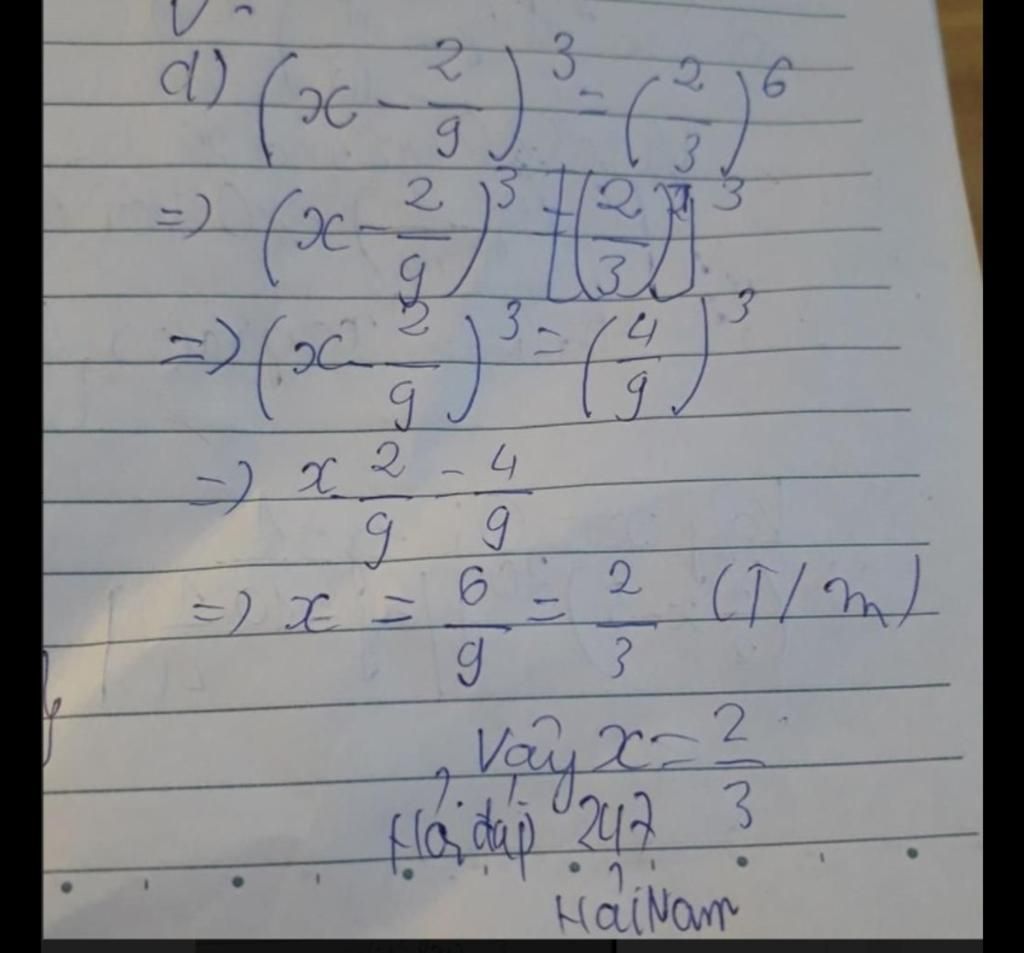 d) (x - 2/9)^3 = (2/3)^6
=> (x - 2/9)^3 = [(2/3)^2]^3
=> (x - 2/9)^3 = (4/9)^3
=> x - 2/9 = 4/9
=> x = 6/9 = 2/3 (T/m)
Vậy x = 2/3
Hỏi đáp 247
Hải Nam